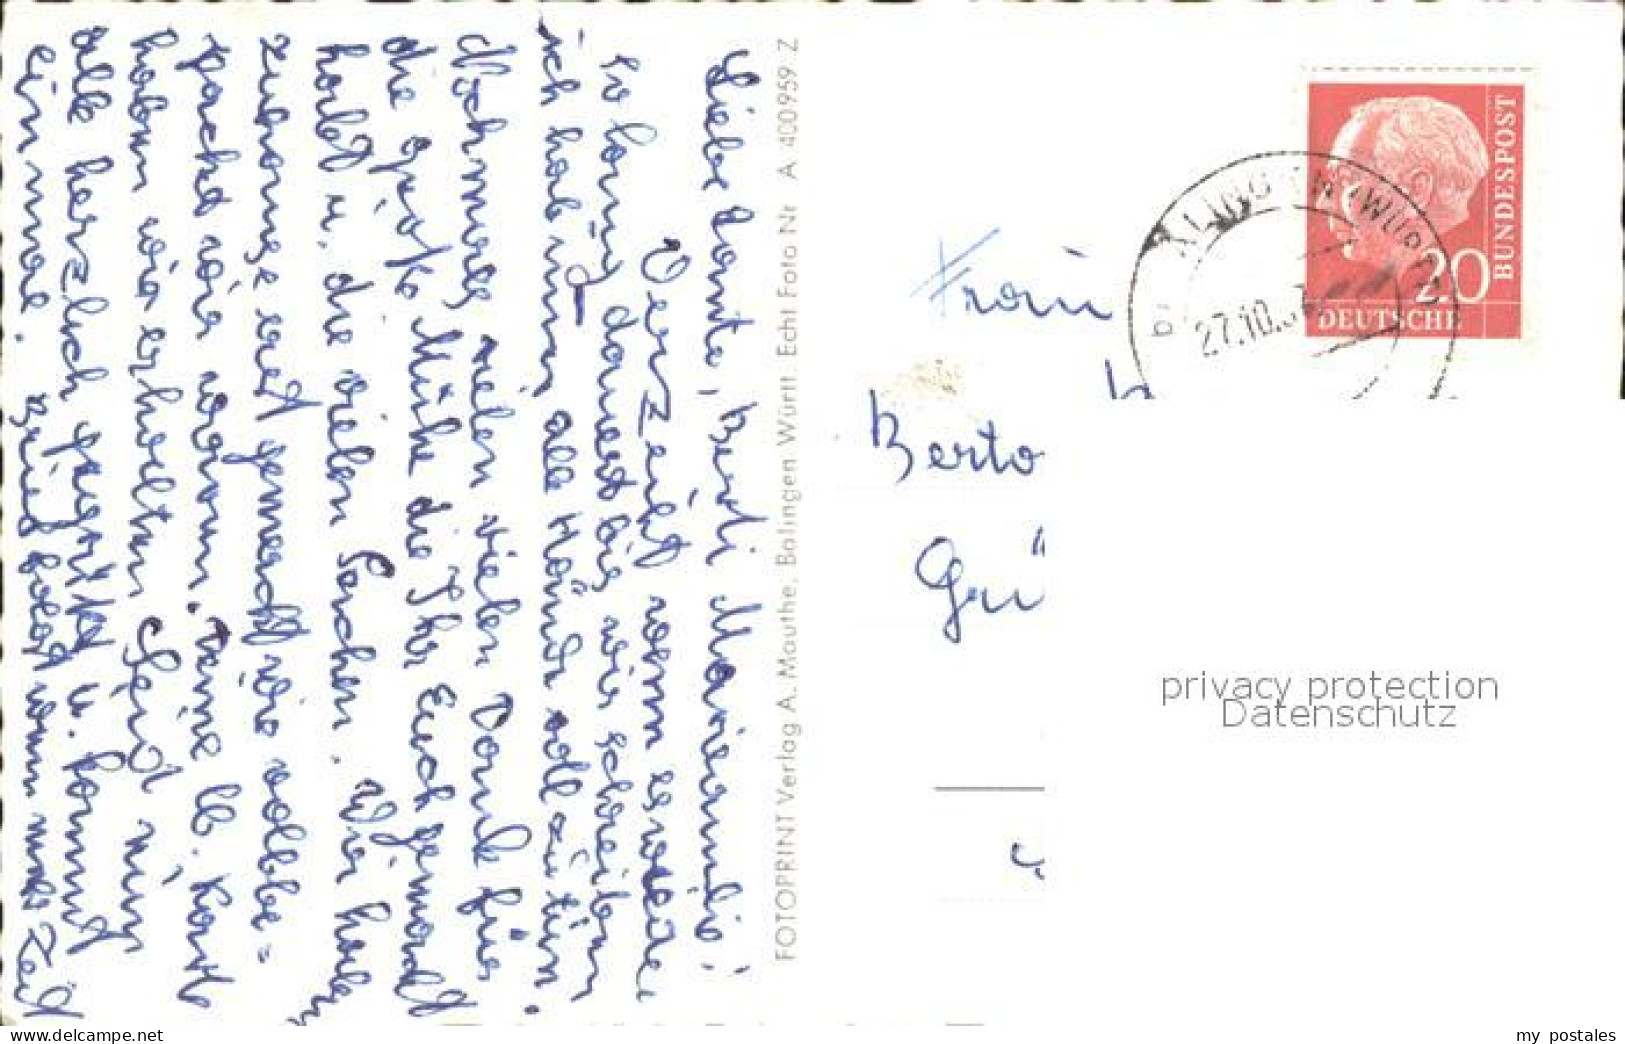 Liebe Tante, Berti Mariannle!
Verzeiht wenn es weite
so lang dauert bis wir schreiben
ich hab nun alle Hände voll zu tun.
Nochmals vielen vielen Dank für
die große Mühe die Ihr Euch gemacht
habt u. die vielen Sachen. Wir haben
zuhause erst gemerkt wie vollbe-
packt wir waren. Deine lb. Karte
haben wir erhalten Seid nun
alle herzlich gegrüßt u. kommt
einmal. Brief folgt wenn mehr Zeit
FOTOPRINT Verlag A. Mauthe, Balingen Württ. Echt Foto Nr. A 400959 Z
BUNDESPOST
20
DEUTSCHE
BALINGEN (WÜRTT)
27.10.
Frau
Berta
Gü
privacy protection
Datenschutz
www.delcampe.net
my_postales